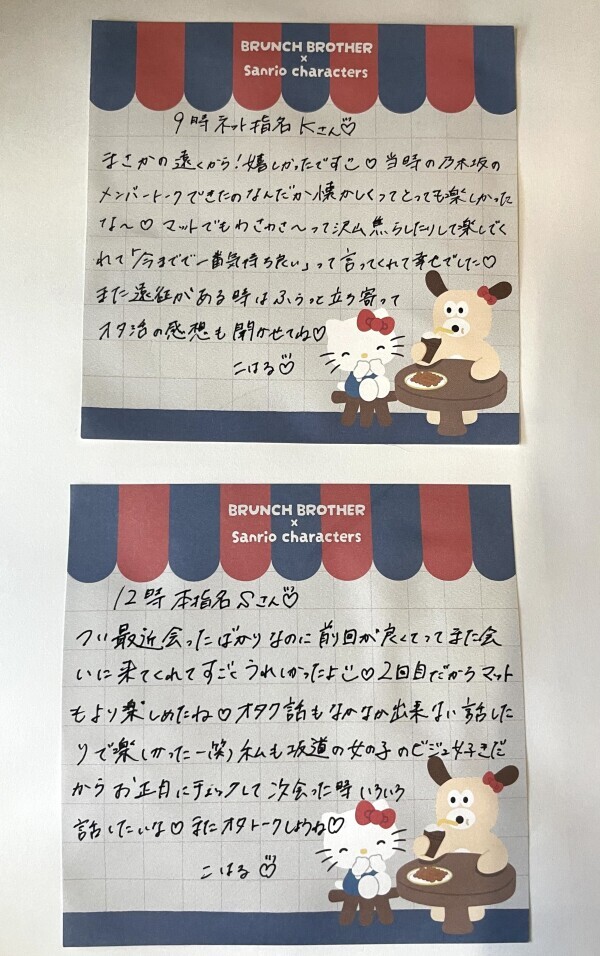 BRUNCH BROTHER
×
Sanrio characters
9時ネット指名Kさん♡
まさかの遠くから!嬉しかったです♡当時の乃木坂の
メンバートークできたのなんだか懐かしくってとっても楽しかった
な〜♡マットでもわさわさ〜って沢山焦らしたりして楽しでく
れて「今までで一番気持ち良い」って言ってくれて幸せでした♡
また遠征がある時はふらっと立ち寄って
オタ活の感想も聞かせてね♡
こはる♡
BRUNCH BROTHER
×
Sanrio characters
12時本指名Sさん♡
つい最近会ったばかりなのに前回が良くてってまた会
いに来てくれてすごくうれしかったよ♡2回目だからマット
もより楽しめたね♡オタク話もなかなか出来ない話した
りで楽しかったー笑)私も坂道の女の子のビジュ好きだ
からお正月にチェックして次会った時いろいろ
話したいな♡またオタトークしようね♡
こはる♡